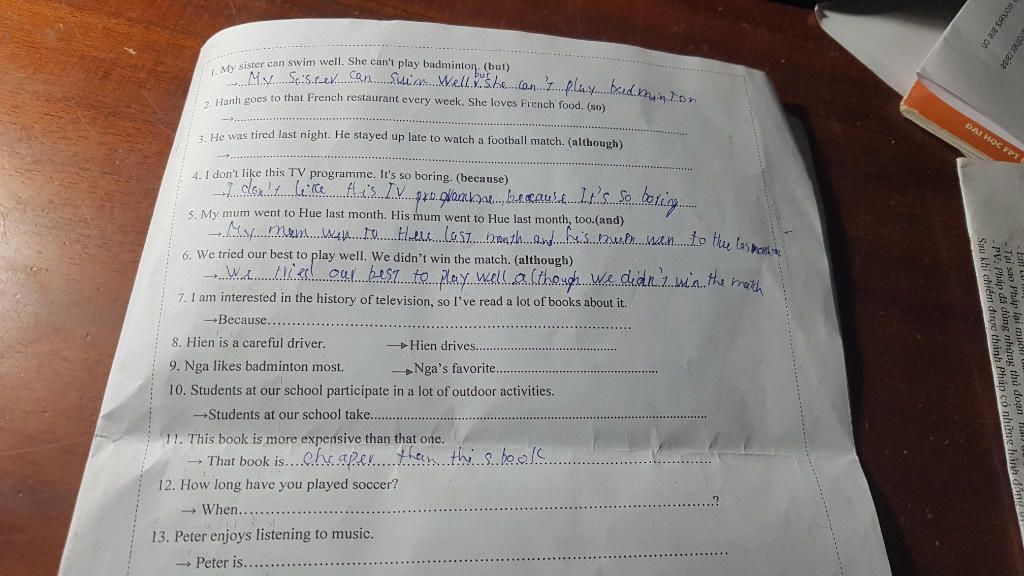 1. My sister can swim well. She can't play badminton. (but)
→ My Sister can Swim well but She can't play badminton
2. Hanh goes to that French restaurant every week. She loves French food. (so)
→
3. He was tired last night. He stayed up late to watch a football match. (although)
→
4. I don't like this TV programme. It's so boring. (because)
→ I don't like this TV programme because It's so boring
5. My mum went to Hue last month. His mum went to Hue last month, too.(and)
→ My mum wen to Hue last month and his mum wen to Hue las month
6. We tried our best to play well. We didn't win the match. (although)
→ We tried our best to play well although we didn't win the match
7. I am interested in the history of television, so I've read a lot of books about it.
→Because
8. Hien is a careful driver. → Hien drives
9. Nga likes badminton most. → Nga's favorite
10. Students at our school participate in a lot of outdoor activities.
→Students at our school take
11. This book is more expensive than that one.
→ That book is cheaper than this book
12. How long have you played soccer?
→ When ?
13. Peter enjoys listening to music.
→ Peter is
workers are on
ĐẠI HỌC FPT